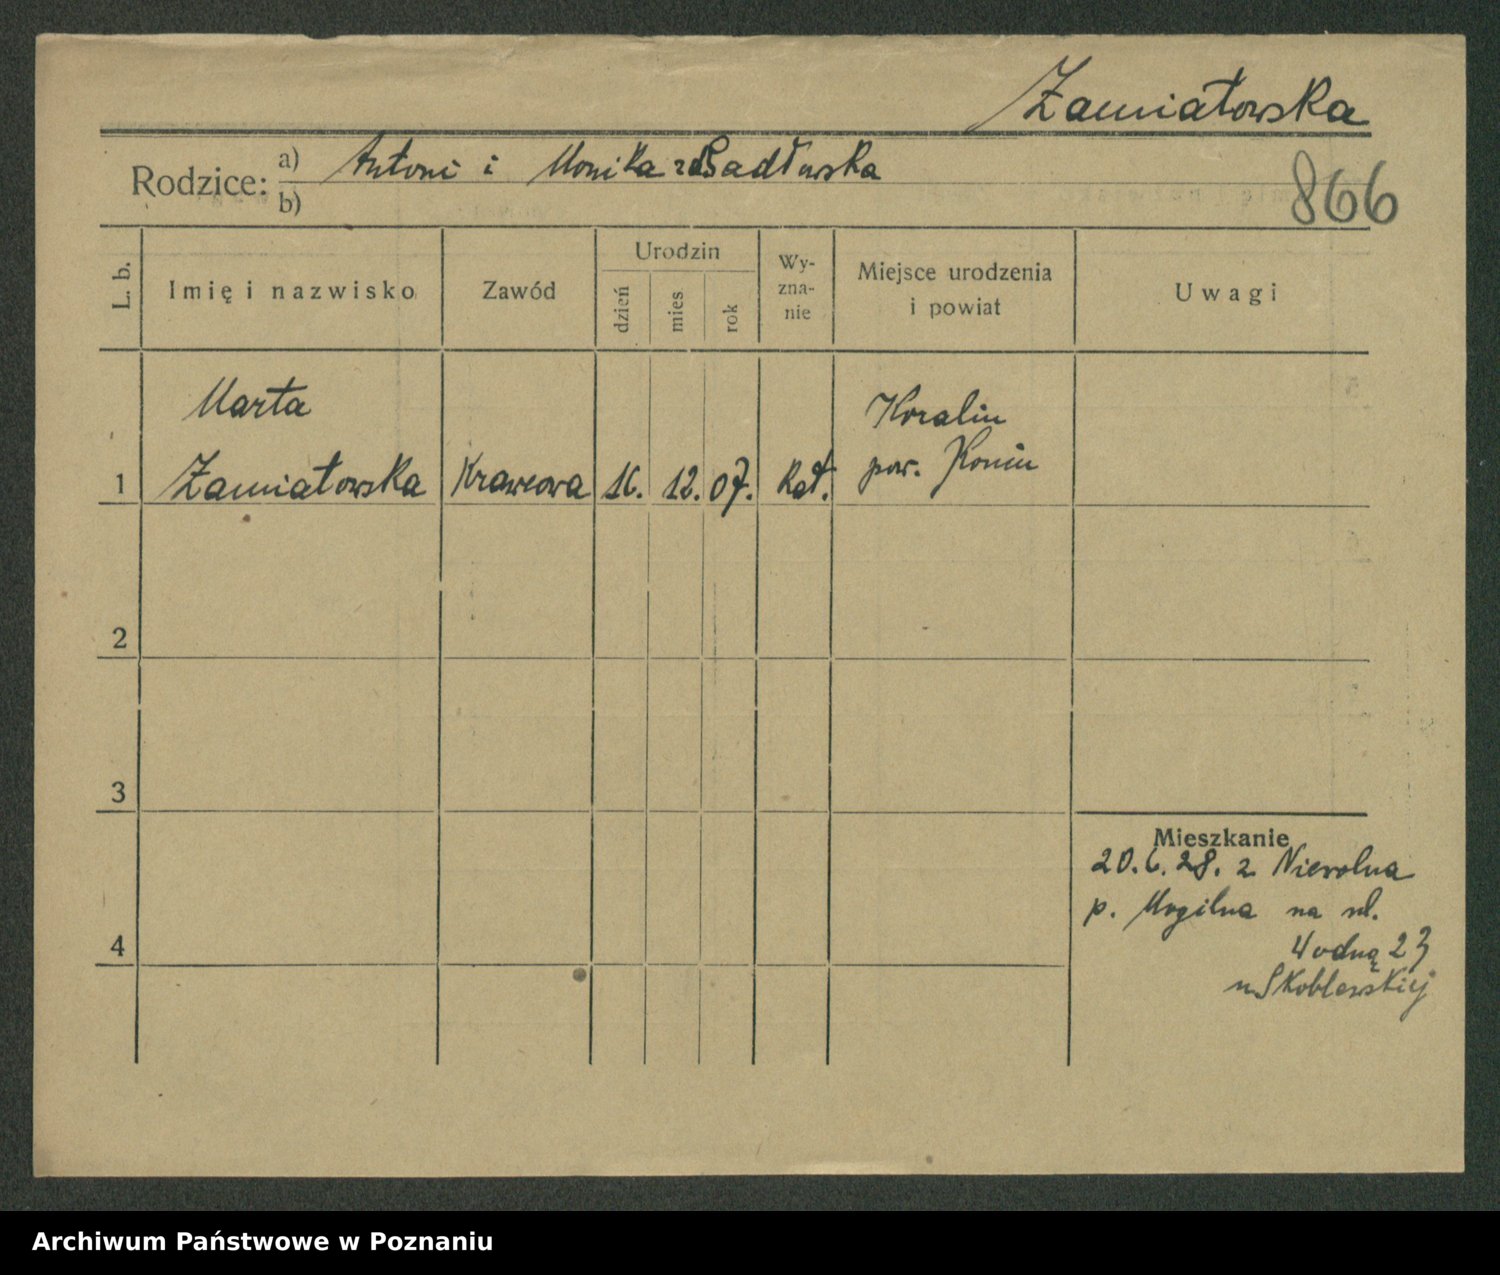 Zamiatowska
Rodzice: a) Antoni i Monika zd Sadłowska
b)
866
L. b.
Imię i nazwisko
Zawód
Urodzin
dzień
mies
rok
Wy-
zna-
nie
Miejsce urodzenia
i powiat
Uwagi
Marta
1 Zamiatowska Krawcowa 16. 12. 07. Kat.
pow. Konin
2
3
4
Mieszkanie
20.6.28. z Niewolna
p. Mogilna na ul.
Wodną 23
u Skoblewskiej
Archiwum Państwowe w Poznaniu